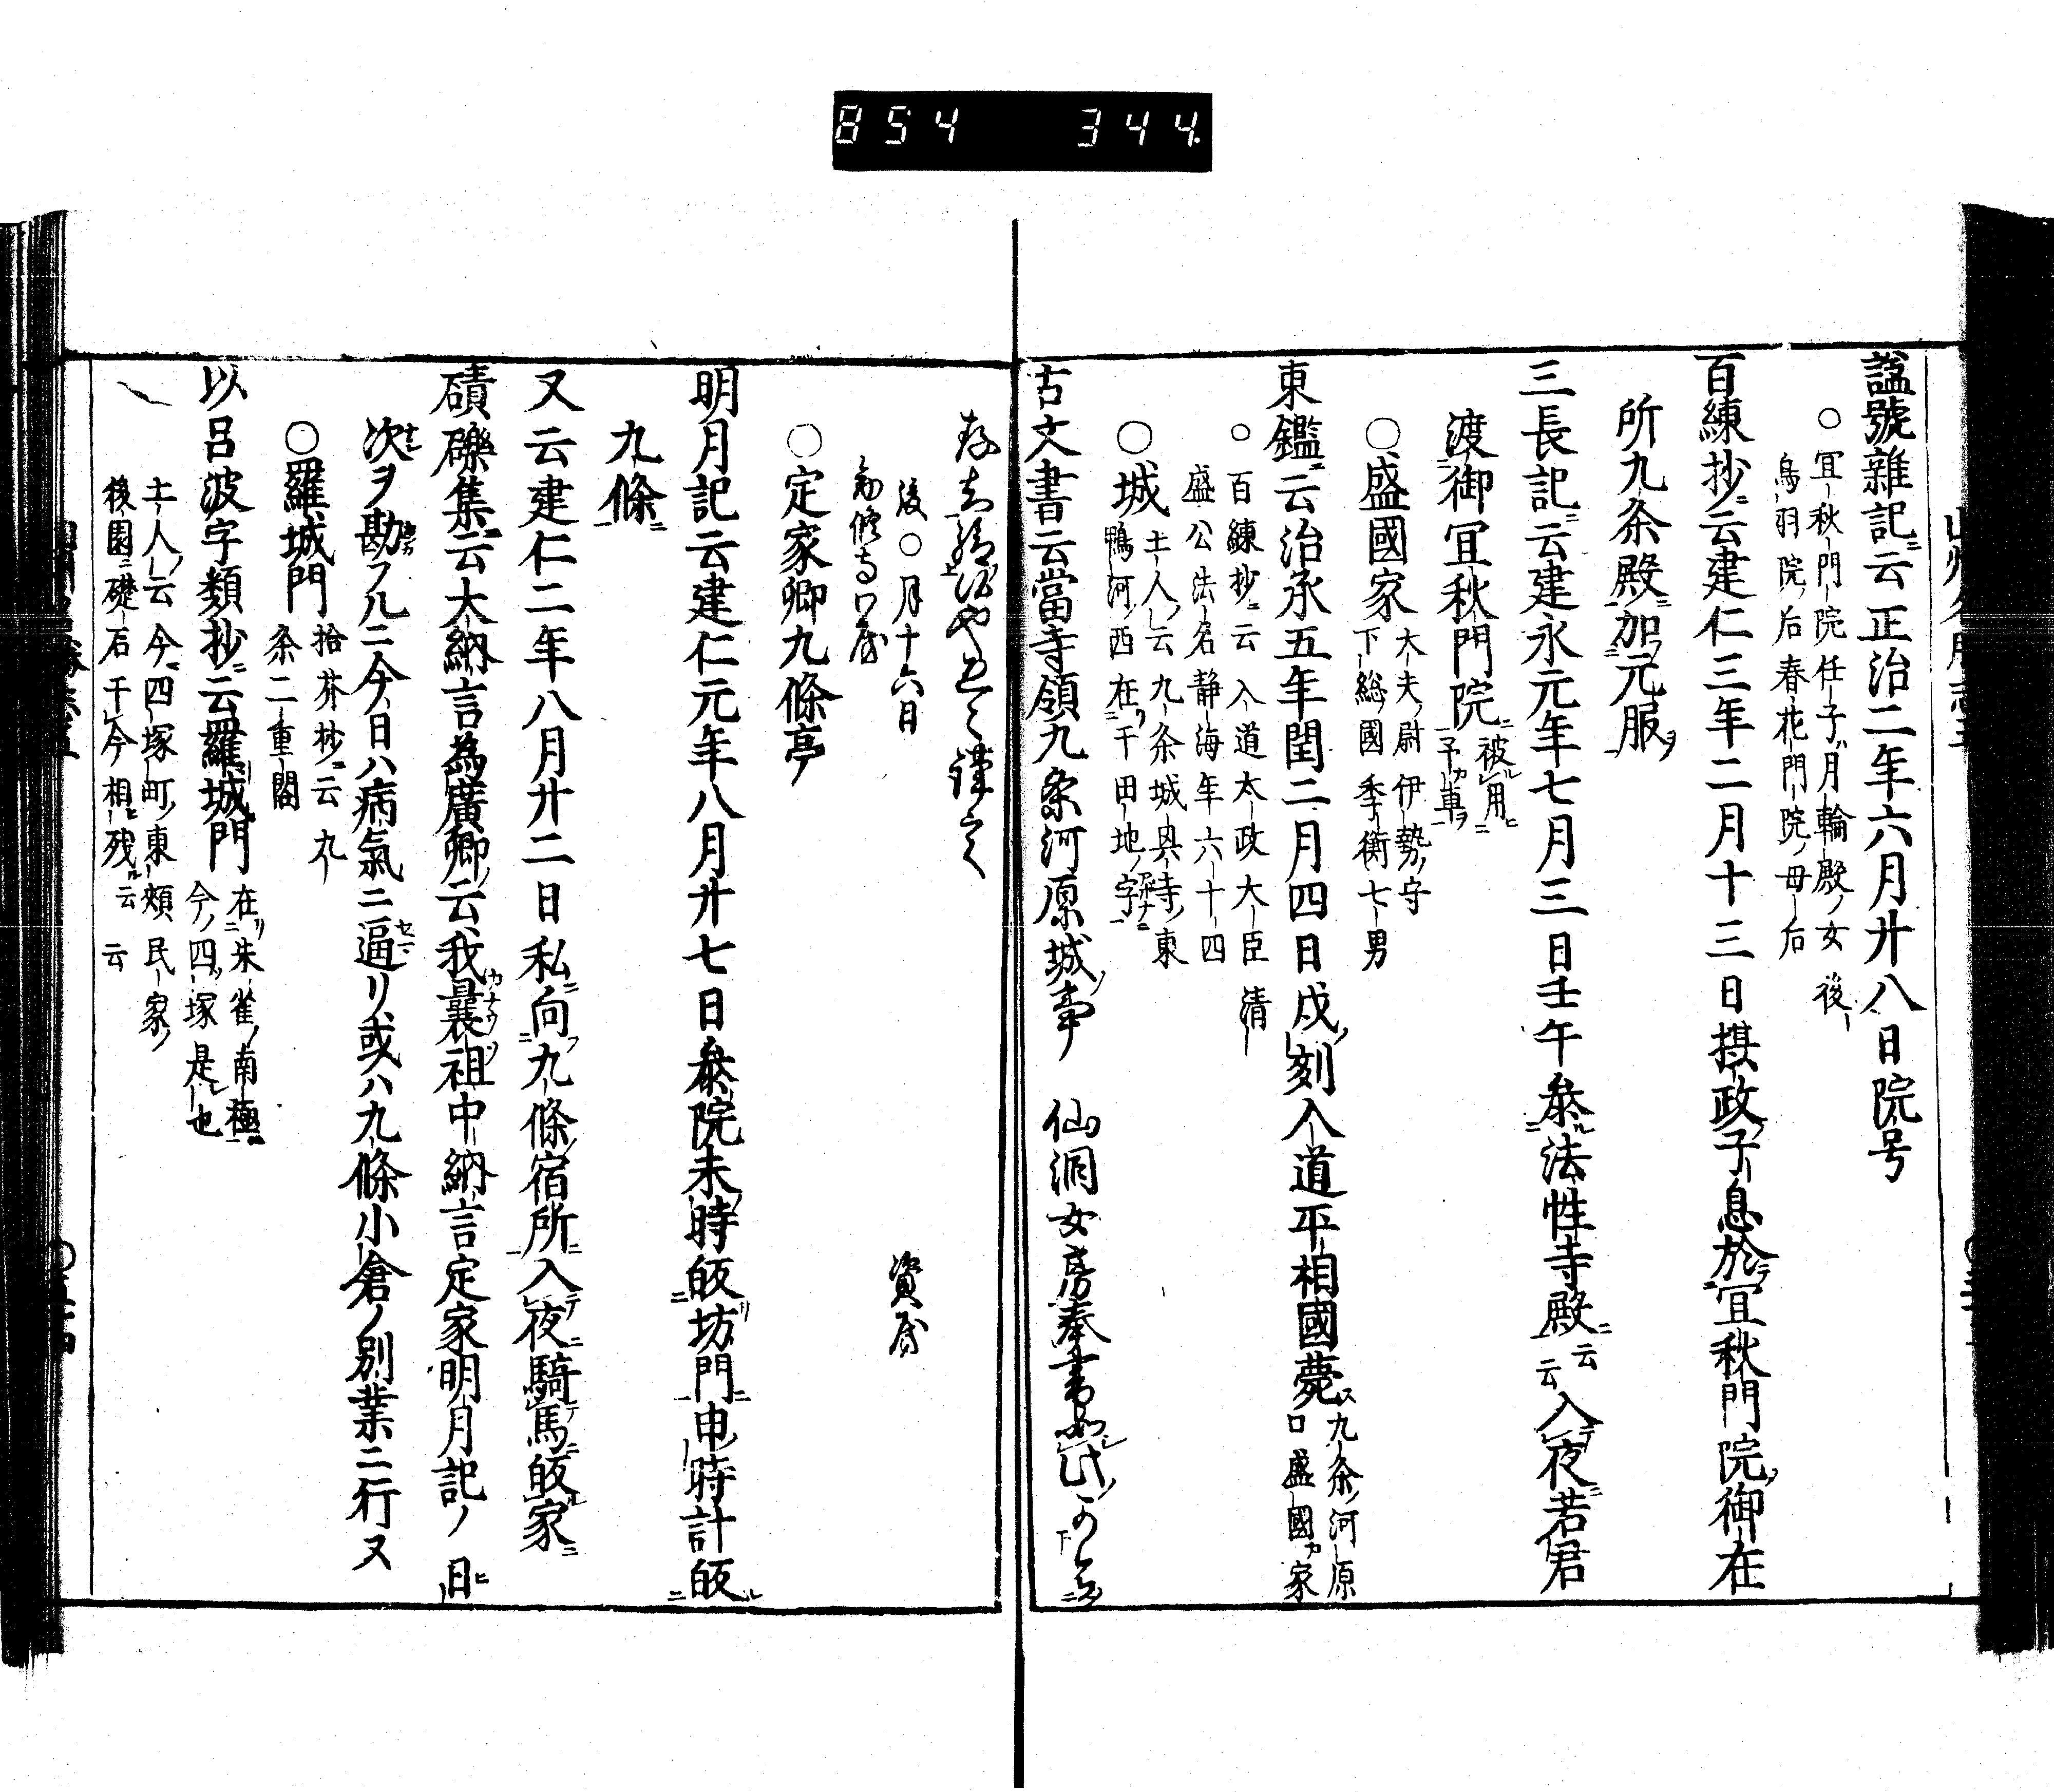 854 344.
諡號雜記ニ云正治二年六月廿八日院号
○宜秋門院任子月輪殿ノ女後
鳥羽院ノ后春花門院ノ母后
百練抄ニ云建仁三年二月十三日摂政ノ子息於テ宜秋門院ノ御在
所九条殿ニ加元服ヲ
三長記ニ云建永元年七月三日壬午参ル法性寺殿ニ云云入テ夜ニ若君
渡御宜秋門院ニ被ル用ヒ
予カ車ヲ
○盛國家大夫ノ尉伊勢ノ守
下総ノ國季衡七男
東鑑ニ云治承五年閏二月四日戌ノ刻入道平相國薨ス九条ノ河原
口盛國カ家
○百練抄ニ云入道太政大臣清
盛公法名静海年六十四
○城土人ノ云九条城奥寺ノ東
鴨河ノ西在リ于田地ノ字ニ
古文書云當寺領九条河原城ノ事仙洞女房奉書如此
謹言
後○月十六日 資
勧修寺口
○定家卿九條亭
明月記云建仁元年八月廿七日参院未ノ時皈リ坊門ニ申ノ時計皈ル
九條ニ
又云建仁二年八月廿二日私ニ向フ九條ノ宿所ニ入テ夜ニ騎テ馬ニ皈ル家ニ
磧礫集ニ云大納言為廣卿ノ云我曩祖中納言定家明月記ノ日
次ヲ勘フルニ今日ハ病氣ニ逼リ或ハ九條小倉ノ別業ニ行又
○羅城門拾芥抄ニ云九
条二重閣
以呂波字類抄ニ云羅城門在リ朱雀ノ南極ニ
今ノ四ツ塚是レ也
土人ノ云今ニ四塚町ノ東頬民家ノ
後園ニ礎石于今相ヒ残ル云云